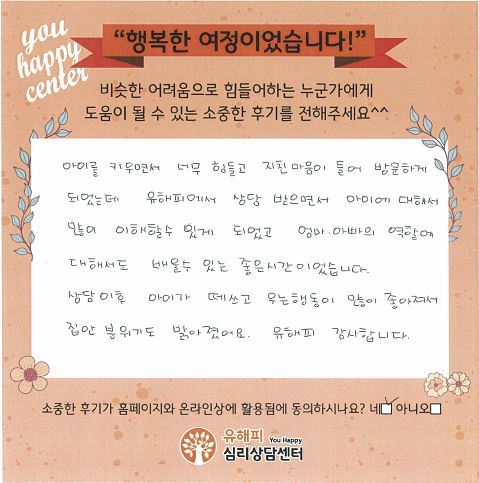 you
happy
center
“행복한 여정이었습니다!”
비슷한 어려움으로 힘들어하는 누군가에게
도움이 될 수 있는 소중한 후기를 전해주세요^^
아이를 키우면서 너무 힘들고 지친 마음이 들어 방문하게
되었는데 유해피에서 상담 받으면서 아이에 대해서
많이 이해할수 있게 되었고 엄마.아빠의 역할에
대해서도 배울수 있는 좋은시간이었습니다.
상담이후 아이가 떼쓰고 우는행동이 많이 좋아져서
집안 분위기도 밝아졌어요. 유해피 감사합니다.
소중한 후기가 홈페이지와 온라인상에 활용됨에 동의하시나요? 네☑ 아니오□
유해피 You Happy
심리상담센터